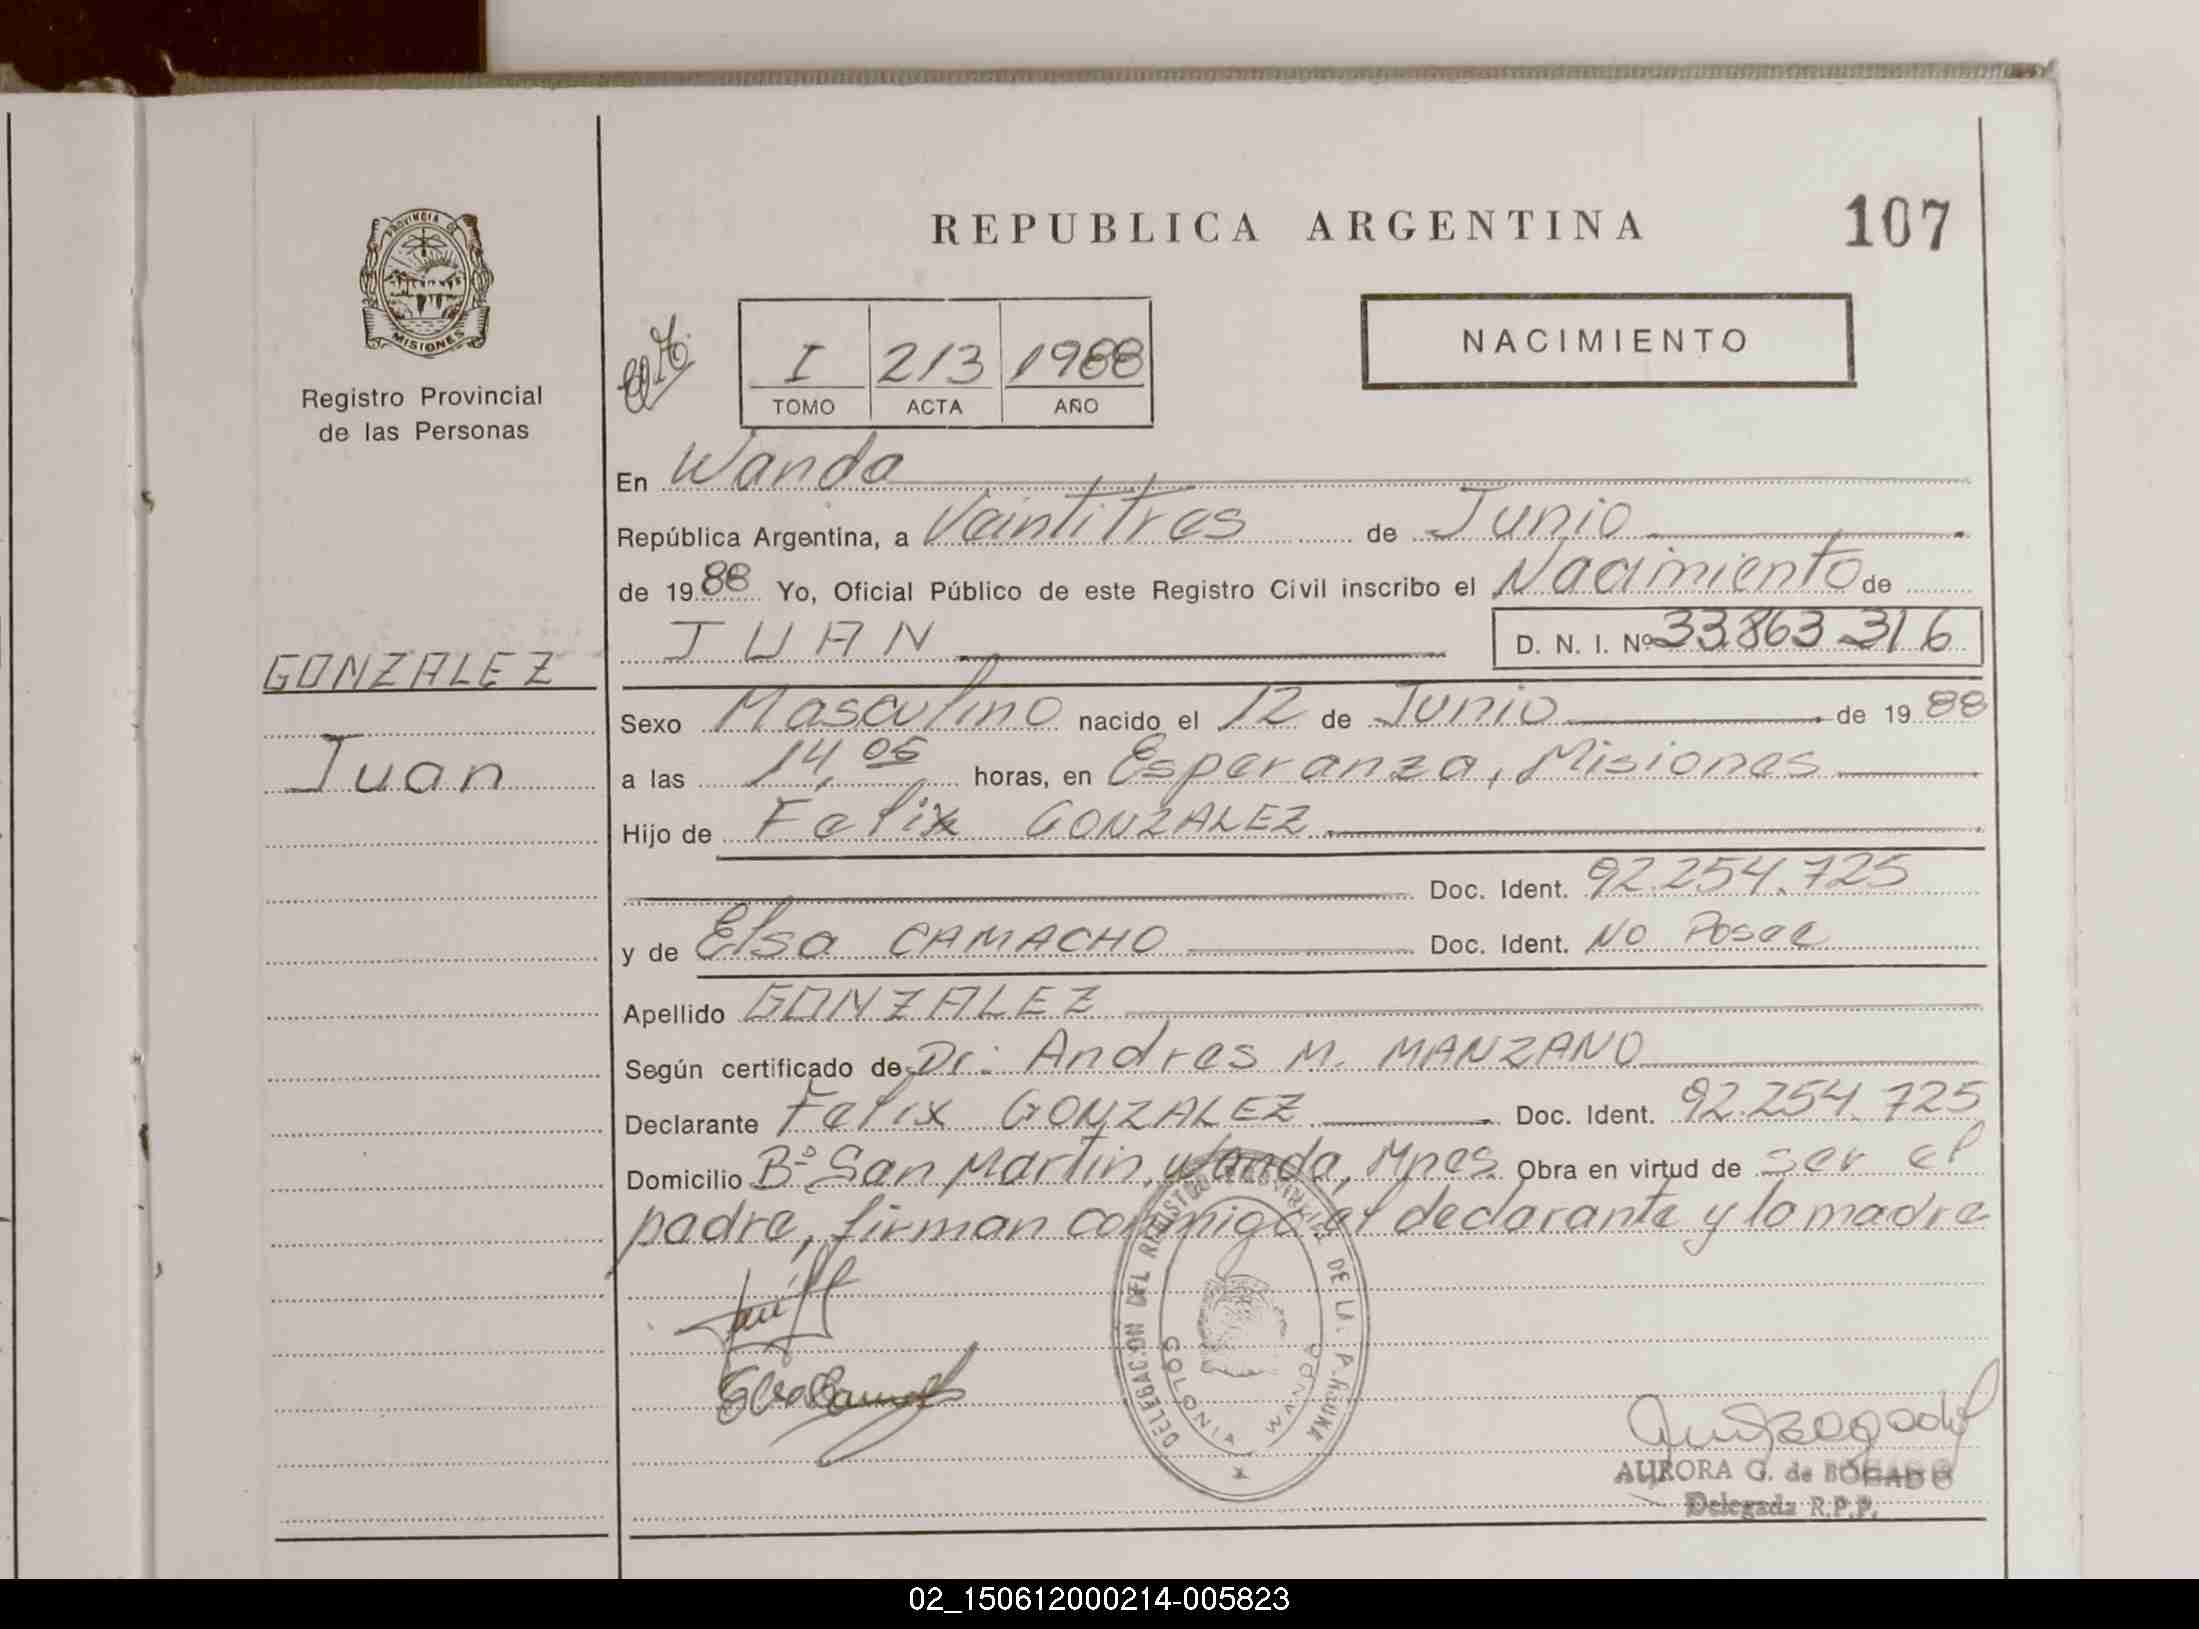 PROVINCIA DE
MISIONES
Registro Provincial
de las Personas
GONZALEZ
Juan
REPUBLICA ARGENTINA
107
I 213 1988
TOMO ACTA AÑO
NACIMIENTO
En Wanda
República Argentina, a Veintitres de Junio
de 1988 Yo, Oficial Público de este Registro Civil inscribo el Nacimiento de
JUAN D. N. I. Nº 33.863.316
Sexo Masculino nacido el 12 de Junio de 1988
a las 14,05 horas, en Esperanza, Misiones
Hijo de Felix GONZALEZ
Doc. Ident. 92.254.725
y de Elsa CAMACHO Doc. Ident. No Posee
Apellido GONZALEZ
Según certificado de Dr. Andres M. MANZANO
Declarante Felix GONZALEZ Doc. Ident. 92.254.725
Domicilio Bº San Martin, Wanda, Mnes. Obra en virtud de ser el
padre, firman conmigo el declarante y la madre
DELEGACION DEL REGISTRO PROVINCIAL DE LA
COLONIA WANDA
AURORA G. de BOGADO
Delegada R.P.P.
02_150612000214-005823